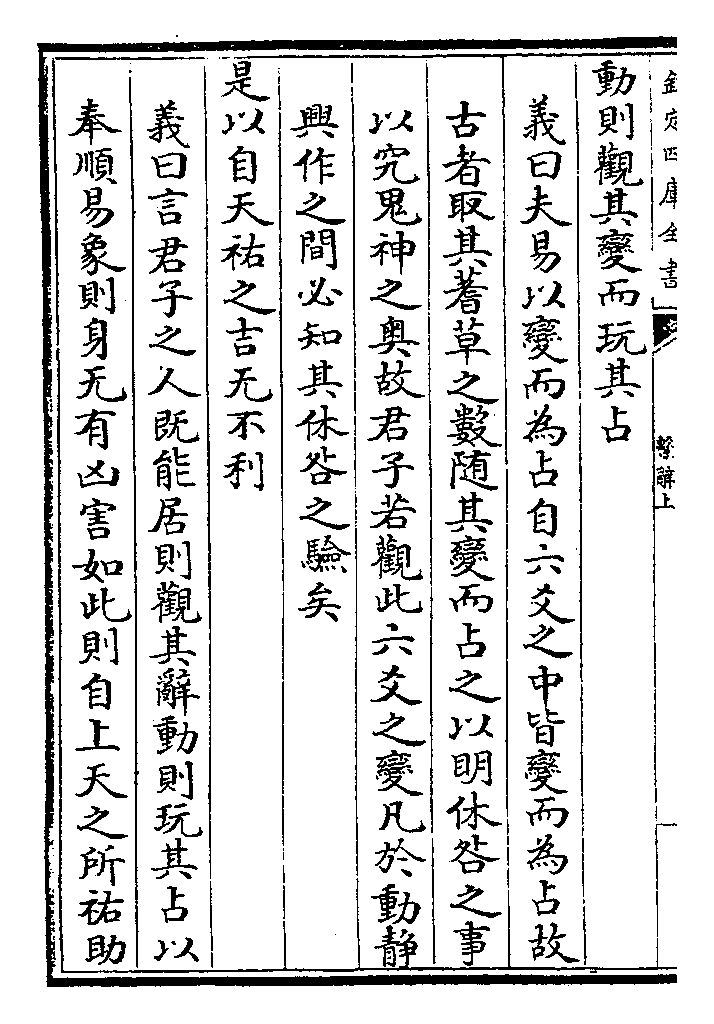 欽定四庫全書
繫辭上
動則觀其變而玩其占
義曰夫易以變而為占自六爻之中皆變而為占故
古者取其蓍草之數随其變而占之以明休咎之事
以究鬼神之奥故君子若觀此六爻之變凡於動靜
興作之間必知其休咎之驗矣
是以自天祐之吉无不利
義曰言君子之人既能居則觀其辭動則玩其占以
奉順易象則身无有凶害如此則自上天之所祐助